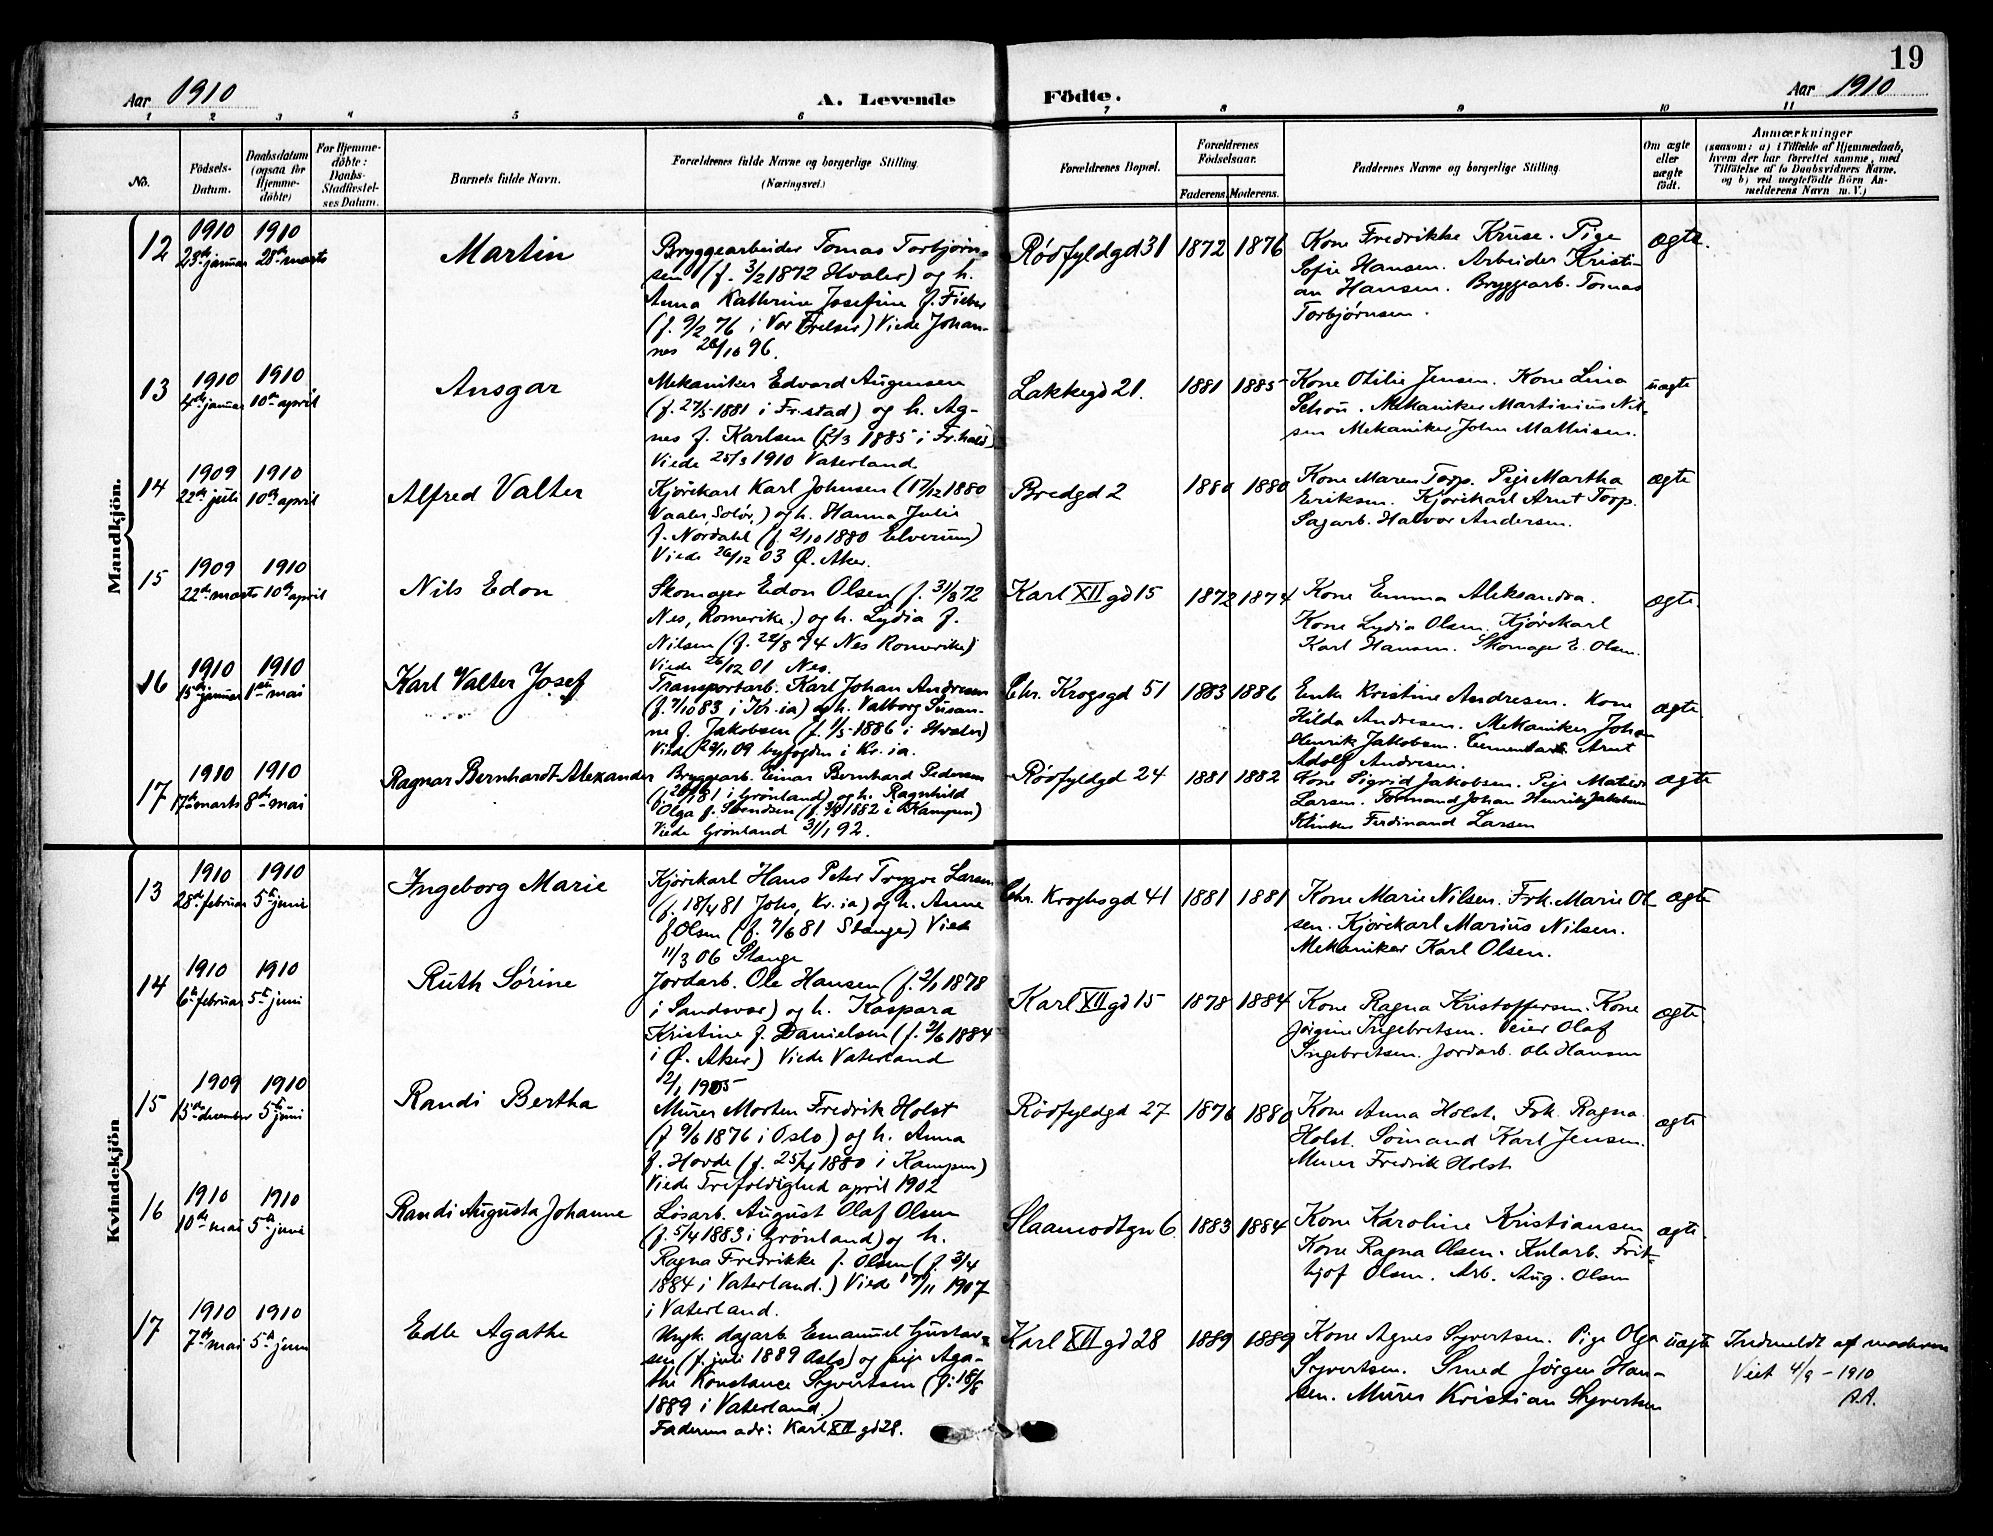 19
Aar 1910
A. Levende Födte.
Aar 1910
1 2 3 4 5 6 7 8 9 10 11
No.
Födsels-
Datum.
Daabsdatum
(ogsaa for
Hjemme-
döbte)
For Hjemme-
döbte:
Daabs-
Stadfæstel-
ses Datum.
Barnets fulde Navn.
Forældrenes fulde Navne og borgerlige Stilling.
(Næringsvei.)
Forældrenes Bopæl.
Forældrenes
Födselsaar.
Faderens. Moderens.
Faddernes Navne og borgerlige Stilling.
Om ægte
eller
uægte
födt.
Anmærkninger
(saasom: a) i Tilfælde af Hjemmedaab,
hvem der har forrettet samme, med
Tilföielse af to Daabsvidners Navne.
og b) ved uægtefödte Börn An-
melderens Navn m. V.)
Mandkjön.
12
1910
23de januar
1910
28de marts
Martin
Bryggearbeider Tomas Torbjørn-
sen (f. 3/2 1872 Hvaler) og h.
Anna Kathrine Josefine f. Fieber
(f. 9/2 76 i Vor Frelser) Viede Johan-
nes 26/10 96.
Rødfyldgd 31
1872 1876
Kone Fredrikke Kruse. Pige
Sofie Hansen. Arbeider Kristi-
an Hansen. Bryggearb. Tomas
Torbjørnsen.
ægte.
13
1910
4de januar
1910
10de april
Ansgar
Mekaniker Edvard Augensen
(f. 27/5 1881 i Fr.stad) og h. Ag-
nes f. Karlsen (f. 2/3 1885 i Fr.hald)
Viede 25/3 1910 Vaterland
Lakkegd 21.
1881 1885
Kone Otilie Jensen. Kone Lina
Schou. Mekaniker Martinius Nil-
sen Mekaniker John Mathisen.
uægte
14
1909
22de juli
1910
10de april
Alfred Valter
Kjørekarl Karl Johnsen (17/12 1880
Vaaler, Solør,) og h. Hanna Julie
f. Nordahl (f. 2/10 1880 Elverum)
Viede 26/12 03 Ø. Aker.
Bredgd 2
1880 1880
Kone Maren Torp. Pige Martha
Eriksen. Kjørekarl Arnt Torp.
Sagarb. Halvor Andersen.
ægte
15
1909
22de marts
1910
10de april
Nils Edon
Skomager Edon Olsen (f. 31/8 72
Nes, Romerike.) og h. Lydia f.
Nilsen (f. 22/8 74 Nes Romerike)
Viede 26/12 01 Nes.
Karl XII gd 15
1872 1874
Kone Emma Aleksandra.
Kone Lydia Olsen. Kjørekarl
Karl Hansen. Skomager E. Olsen.
ægte.
16
1910
15de januar
1910
1ste mai
Karl Valter Josef
Transportarb. Karl Johan Andresen
(f. 7/10 83 i Kr.ia) og h. Valborg Susan-
ne f. Jakobsen (f. 1/5 1886 i Hvaler)
Viede 29/11 09 byfogden i Kr.ia.
Chr. Krogsgd 51
1883 1886
Enke Kristine Andresen. Kone
Hilda Andresen. Mekaniker Joh.
Henrik Jakobsen. Cementarb. Arnt
Adolf Andresen.
ægte.
17
1910
17de marts
1910
8de mai
Ragnar Bernhardt Alexander
Bryggearb. Einar Bernhard Pedersen
1881 i Grønland) og h. Ragnhild
Olga f. Svendsen (f. 3/9 1882 i Kampen)
Viede Grønland 31/1 92.
Rødfyldgd 24
1881 1882
Kone Sigrid Jakobsen. Pige Matilde
Larsen. Formand Johan Henrik Jakobsen
Klinker Ferdinand Larsen
ægte
Kvindekjön
13
1910
28de februar
1910
5te juni
Ingeborg Marie
Kjørekarl Hans Peter Trygve Larsen
(f. 18/4 81 Johs, Kr.ia) og h. Anne
f Olsen (f. 7/6 81 Stange) Viede
11/3 06 Stange
Chr. Kroghsgd 41
1881 1881
Kone Marie Nilsen. Frk. Marie Ol-
sen. Kjørekarl Marius Nilsen.
Mekaniker Karl Olsen.
ægte
14
1910
6te februar
1910
5te juni
Ruth Sørine
Jordarb. Ole Hansen (f. 2/1 1878
i Sandsvær) og h. Kaspara
Kristine f. Danielsen (f. 2/6 1884
i Ø. Aker) Viede Vaterland
2/1 1905
Karl XII gd 15
1878 1884
Kone Ragna Kristoffersen. Kone
Jørgine Ingebretsen. Veier Olaf
Ingebretsen. Jordarb. Ole Hansen
ægte.
15
1909
15de december
1910
5te juni
Randi Bertha
Murer Morten Fredrik Holst
(f 9/6 1876 i Oslo) og h. Anna
f. Hovde (f. 25/4 1880 i Kampen)
Viede Trefoldighed april 1902
Rødfyldgd 27
1876 1880
Kone Anna Holst. Frk. Ragna
Holst. Sømand Karl Jensen.
Murer Fredrik Holst
ægte
16
1910
10de mai
1910
5te juni
Randi Augusta Johanne
Løsarb. August Olaf Olsen
(f. 5/4 1883 i Grønland) og h.
Ragna Fredrikke f. Olsen (f. 3/4
1884 i Vaterland.) Viede 17/11 1907
i Vaterland.
Slaamodtgn 6
1883 1884
Kone Karoline Kristiansen
Kone Ragna Olsen. Kularb. Frit-
hjof Olsen. Arb. Aug. Olsen
ægte.
17
1910
7de mai
1910
5te juni
Edle Agathe
Ungk. dagarb Emanuel Gustav-
sen (f. juli 1889 Oslo) og pige Aga-
the Konstance Syvertsen (f. 18/8
1889 i Vaterland.)
Faderens adr: Karl XII gd 28.
Karl XII gd 28
1889 1889
Kone Agnes Syvertsen. Pige Olga
Syvertsen. Smed Jørgen Han-
sen. Murer Kristian Syvertsen
uægte
Indmeldt af moderen
Viet 4/9 - 1910
A.A.